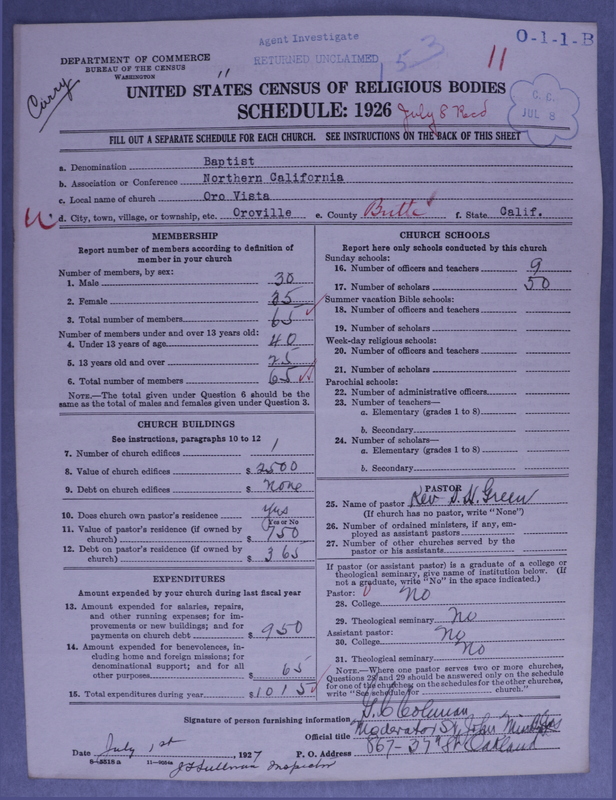 Agent Investigate
RETURNED UNCLAIMED
153
11
O-1-1-B
C. C.
JUL 8
Curry
DEPARTMENT OF COMMERCE
BUREAU OF THE CENSUS
WASHINGTON
UNITED STATES CENSUS OF RELIGIOUS BODIES
SCHEDULE: 1926
July 8 Recd
FILL OUT A SEPARATE SCHEDULE FOR EACH CHURCH. SEE INSTRUCTIONS ON THE BACK OF THIS SHEET
a. Denomination Baptist
b. Association or Conference Northern California
c. Local name of church Oro Vista
d. City, town, village, or township, etc. Oroville e. County Butte f. State Calif.
MEMBERSHIP
Report number of members according to definition of member in your church
Number of members, by sex:
1. Male 30
2. Female 35
3. Total number of members 65
Number of members under and over 13 years old:
4. Under 13 years of age 40
5. 13 years old and over 25
6. Total number of members 65
NOTE.—The total given under Question 6 should be the same as the total of males and females given under Question 3.
CHURCH BUILDINGS
See instructions, paragraphs 10 to 12
7. Number of church edifices 1
8. Value of church edifices $ 2500
9. Debt on church edifices $ none
10. Does church own pastor's residence yes
Yes or No
11. Value of pastor's residence (if owned by church) $ 750
12. Debt on pastor's residence (if owned by church) $ 365
EXPENDITURES
Amount expended by your church during last fiscal year
13. Amount expended for salaries, repairs, and other running expenses; for improvements or new buildings; and for payments on church debt $ 950
14. Amount expended for benevolences, including home and foreign missions; for denominational support; and for all other purposes $ 65
15. Total expenditures during year $ 1015
CHURCH SCHOOLS
Report here only schools conducted by this church
Sunday schools:
16. Number of officers and teachers 9
17. Number of scholars 50
Summer vacation Bible schools:
18. Number of officers and teachers
19. Number of scholars
Week-day religious schools:
20. Number of officers and teachers
21. Number of scholars
Parochial schools:
22. Number of administrative officers
23. Number of teachers—
a. Elementary (grades 1 to 8)
b. Secondary
24. Number of scholars—
a. Elementary (grades 1 to 8)
b. Secondary
PASTOR
25. Name of pastor Rev S. H. Green
(If church has no pastor, write "None")
26. Number of ordained ministers, if any, employed as assistant pastors
27. Number of other churches served by the pastor or his assistants
If pastor (or assistant pastor) is a graduate of a college or theological seminary, give name of institution below. (If not a graduate, write "No" in the space indicated.)
Pastor:
28. College No
29. Theological seminary No
Assistant pastor:
30. College No
31. Theological seminary No
NOTE.—Where one pastor serves two or more churches, Questions 28 and 29 should be answered only on the schedule for one of the churches; on the schedules for the other churches, write "See schedule for church."
Signature of person furnishing information G. C. Coleman
Official title Moderator St John
Date July 1st, 1927 P. O. Address 867-37th St Oakland
8-5518a
Inspector